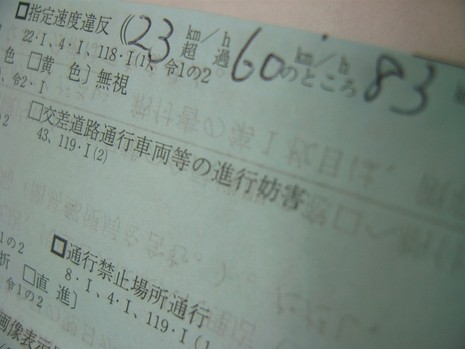 □指定速度違反 (23 km/h 超過 60 km/hのところ 83 k
22・I、4・I、118・I(1)、令1の2
色 □黄 色〕無視
、令2・I
□交差道路通行車両等の進行妨害
43、119・I(2)
の2
□通行禁止場所通行
8・I、4・I、119・I(1
1の2
折 □直 進〕
、令1の2
画像表示